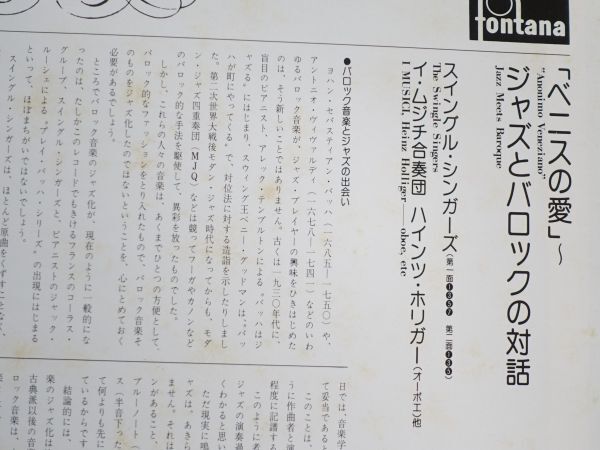 fontana
「ベニスの愛」〜
"Anonimo Veneziano"
ジャズとバロックの対話
Jazz Meets Baroque
スイングル・シンガーズ(第一面❶❸❺❼ 第二面❶❸❺)
The Swingle Singers
イ・ムジチ合奏団 ハインツ・ホリガー(オーボエ)他
I MUSICI, Heinz Holliger——oboe, etc
●バロック音楽とジャズの出会い
ヨハン・セバスティアン・バッハ(一六八五―一七五〇)や、
アントニオ・ヴィヴァルディ(一六七八―一七四一)などのいわ
ゆるバロック音楽が、ジャズ・プレイヤーの興味をひきはじめた
のは、そう新しいことではありません。古くは一九三〇年代に、
盲目のピアニスト、アレック・テンプルトンによる〝バッハはジ
ャズる〟にはじまり、スウィング王ベニー・グッドマンは〝バッ
ハが町にやってくる〟で、対位法に対する造詣を示したりしまし
た。第二次世界大戦後モダン・ジャズ時代になってからも、モダ
ン・ジャズ四重奏団(MJQ)などは競ってフーガやカノンなど
のバロック的な手法を駆使して、異彩を放ったものでした。
しかし、これらの人々の音楽は、あくまでひとつの方便として、
バロック的なファッションをとり入れたもので、バロック音楽そ
のものをジャズ化したのではないということを、心にとめておく
必要があるでしょう。
ところでバロック音楽のジャズ化が、現在のように一般的にな
ったのは、たしかこのレコードでもきけるフランスのコーラス・
グループ、スイングル・シンガーズと、ピアニストのジャック・
ルーシェによる〝プレイ・バッハ・シリーズ〟の出現にはじまる
といって、ほぼまちがいではないでしょう。
スイングル・シンガーズは、ほとんど原曲をくずすことなく、
日では、音楽学
て妥当であると
このことは、
うに作曲者と演
程度に記譜する
このように考
ジャズの演奏過
くわかると思い
ただ現実に鳴
ャズは、あきら
ません。それは
ンがあること、
ブルーノート(
ス(半音下った
て何よりも先に
ているからです
結論的には、
楽のジャズ化は
古典派以後の音
ロック音楽は、